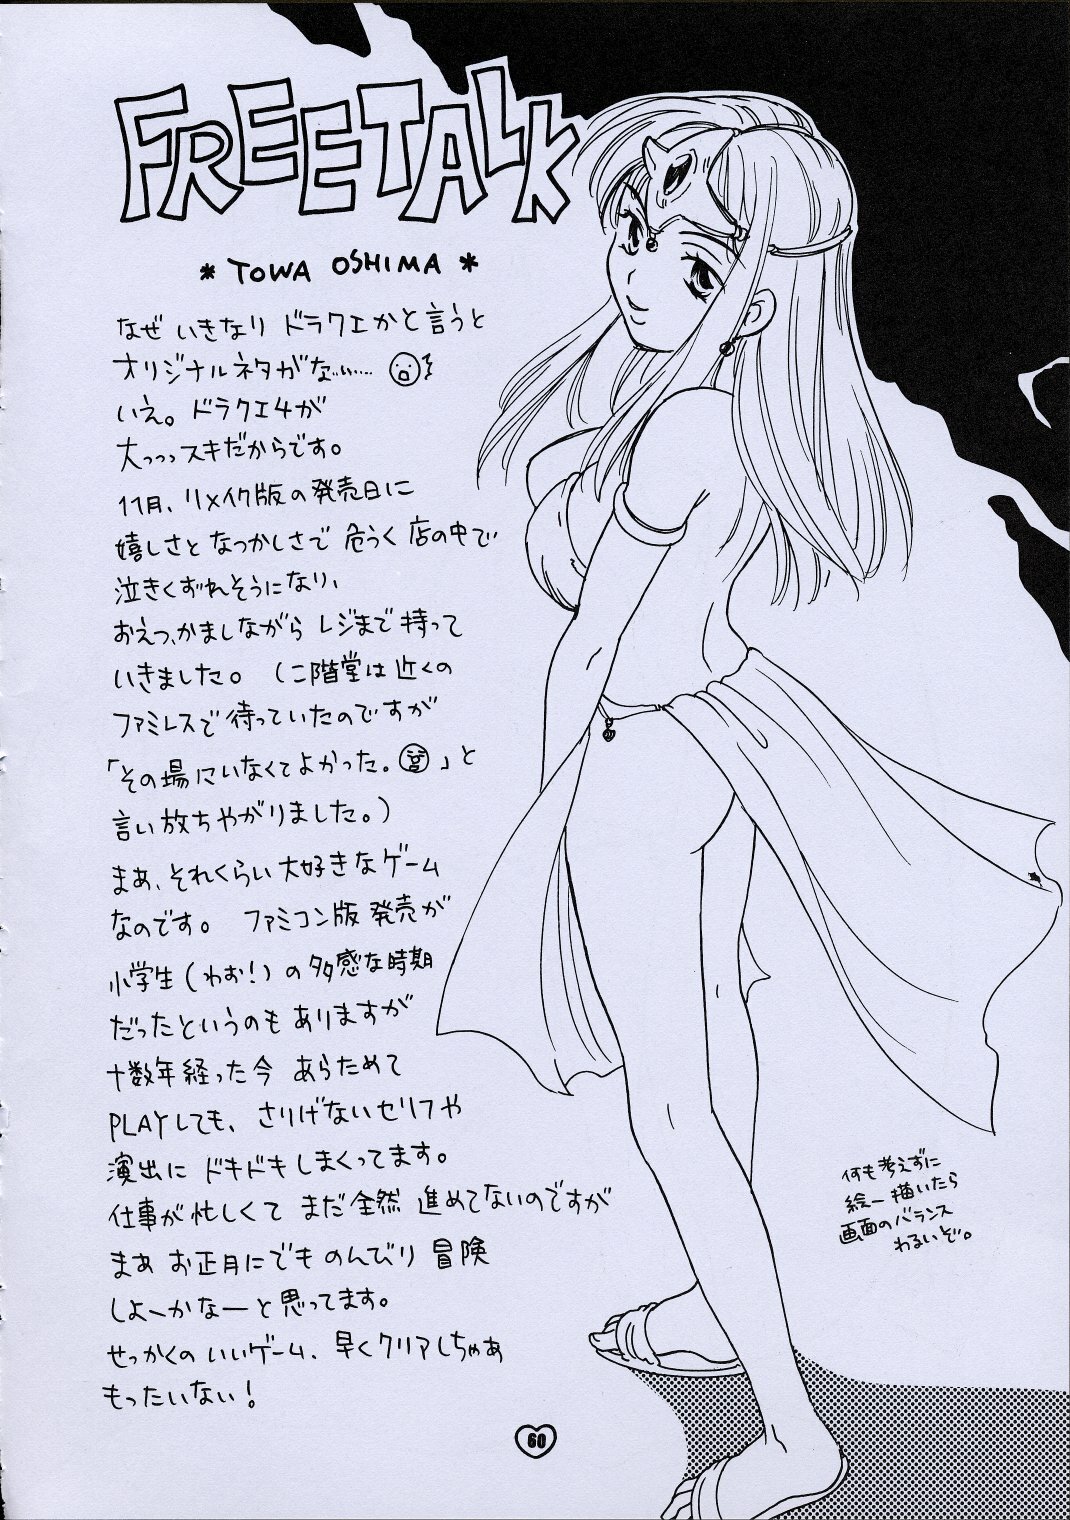 FREETALK
* TOWA OSHIMA *
なぜ いきなり ドラクエかと言うと
オリジナルネタがなぃぃ……
いえ。ドラクエ4が
大っっっスキだからです。
11月、リメイク版の発売日に
嬉しさと なつかしさで 危うく店の中で
泣きくずれそうになり、
おえつ、かましながら レジまで 持って
いきました。 (二階堂は近くの
ファミレスで 待っていたのですが
「その場にいなくてよかった。」と
言い放ちやがりました。)
まぁ、それくらい大好きなゲーム
なのです。 ファミコン版 発売が
小学生(わお!)の 多感な時期
だったというのも ありますが
十数年経った今 あらためて
PLAYしても、さりげないセリフや
演出に ドキドキしまくってます。
仕事が忙しくて まだ全然 進めてないのですが
まあ お正月にでも のんびり 冒険
しよーかなーと思ってます。
せっかくの いいゲーム、早くクリアしちゃあ
もったいない!
何も考えずに
絵ー描いたら
画面のバランス
わるいぞ。
60